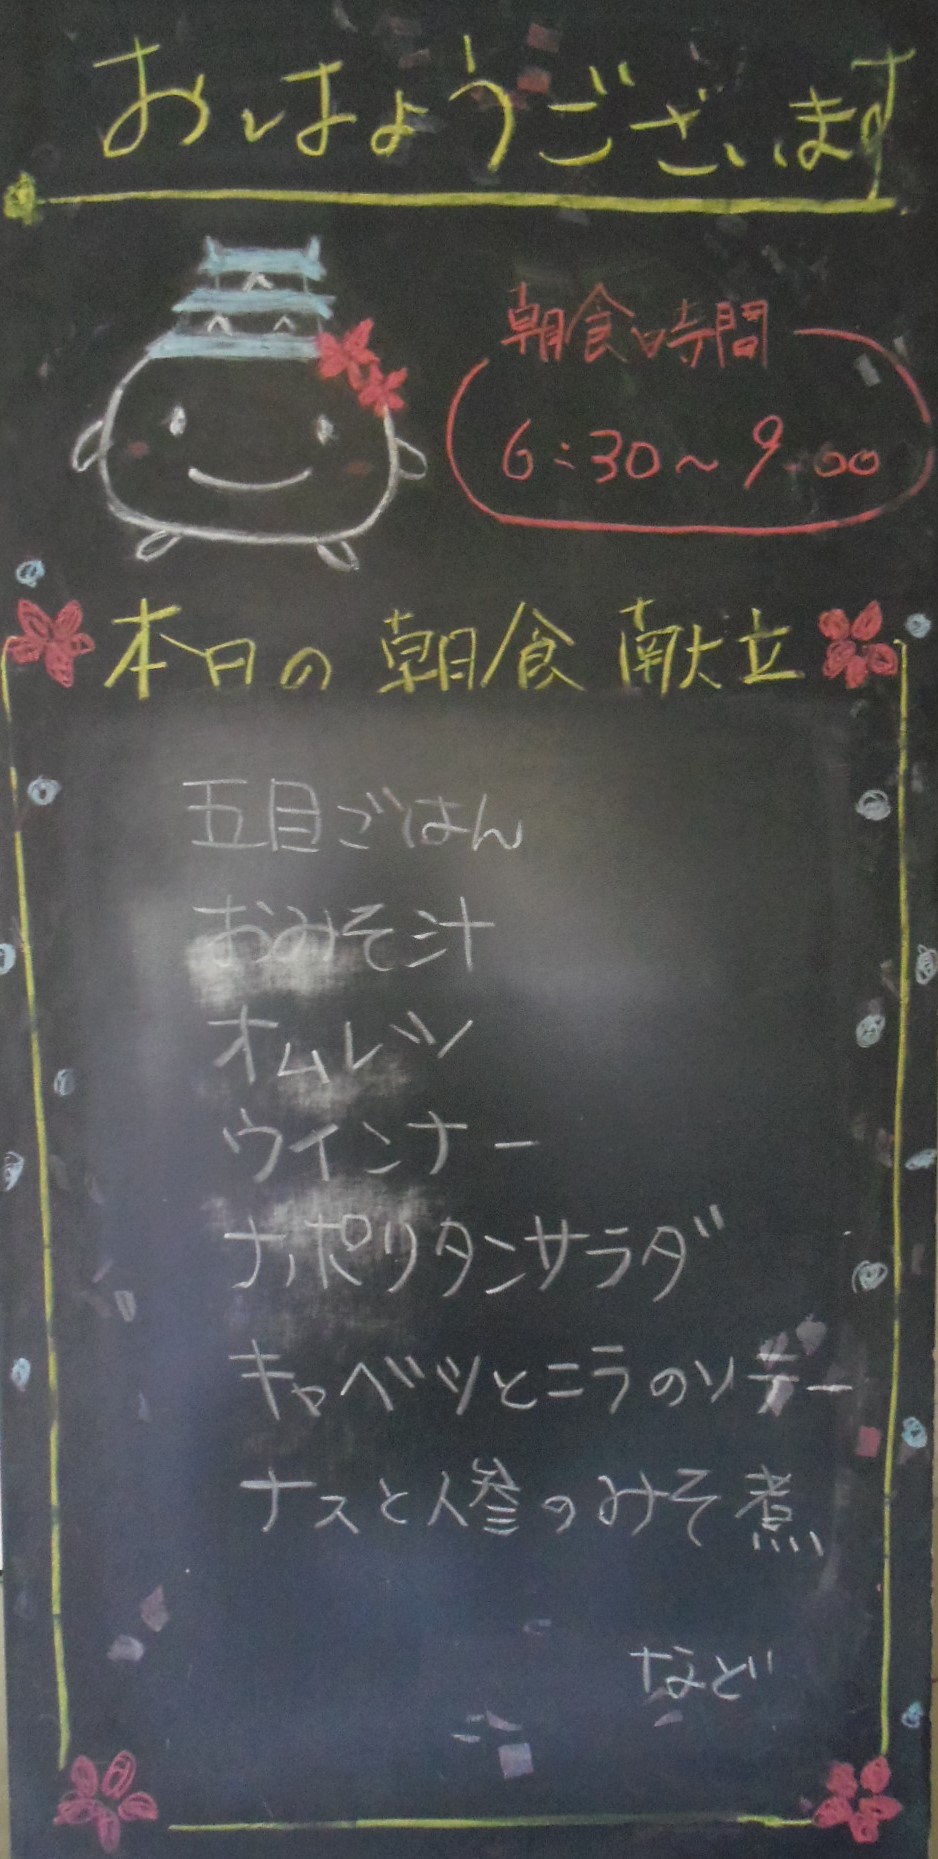 おはようございます
朝食時間
6:30〜9:00
本日の朝食献立
五目ごはん
おみそ汁
オムレツ
ウインナー
ナポリタンサラダ
キャベツとニラのソテー
ナスと人参のみそ煮
など